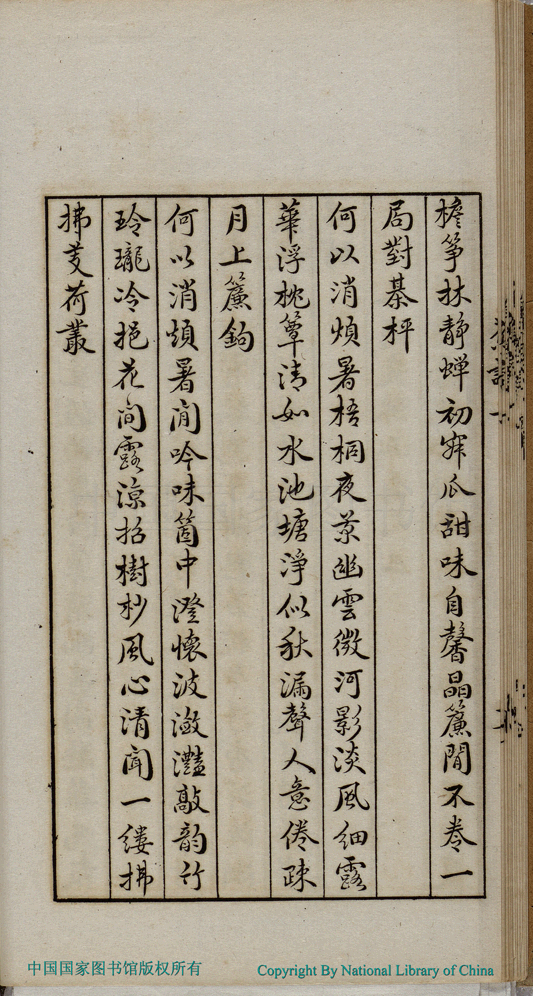 檐箏抹靜蟬初寂瓜甜味自馨晶簾閒不卷一
局對棊枰
何以消煩暑梧桐夜景幽雲微河影淡風細露
華浮枕簟清如水池塘淨似秋漏聲人意倦疎
月上簾鉤
何以消煩暑閒吟味箇中澄懷波瀲灩敲韵竹
玲瓏冷挹花間露涼招樹杪風心清聞一縷拂
拂芰荷叢
中国国家图书馆版权所有
Copyright By National Library of China